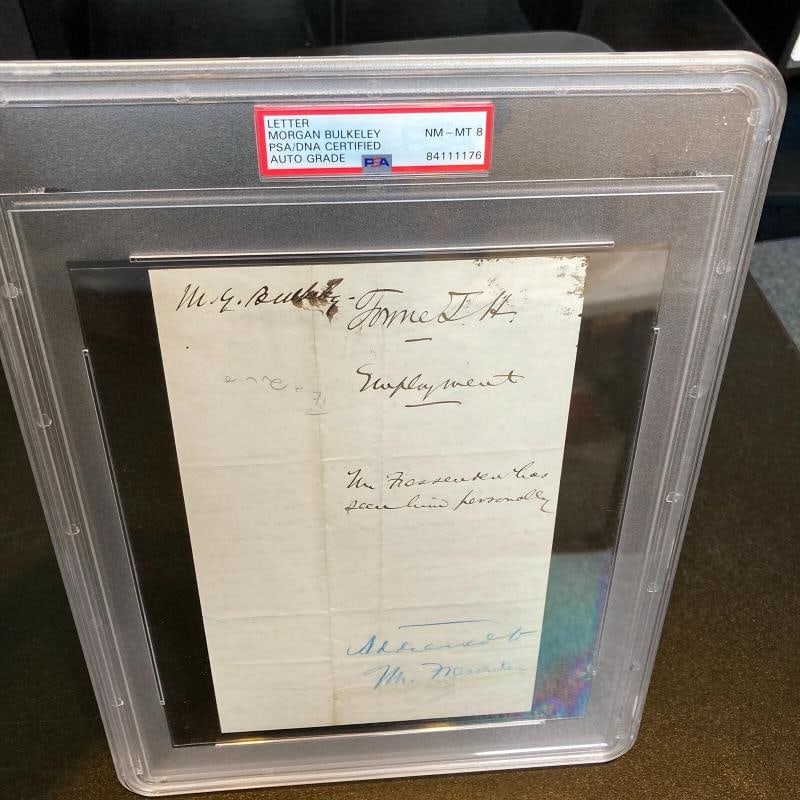 LETTER
MORGAN BULKELEY NM – MT 8
PSA/DNA CERTIFIED
AUTO GRADE PSA 84111176
M. G. Bulkeley
J. H.
Employment
Mr Fessenden has
seen him personally
Addressed to
Mr. Fessenden